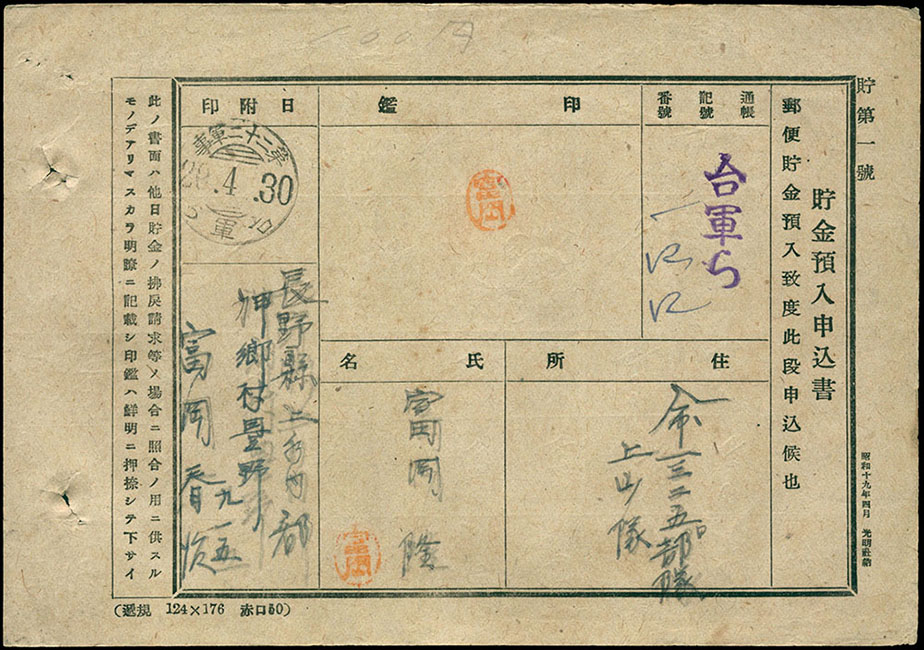 一〇〇円
貯第一號
貯金預入申込書
郵便貯金預入致度此段申込候也
昭和十九年四月 光明社納
通帳
記號
番號
台軍ら
印鑑
富岡
住所
命一三二五部隊
上山隊
氏名
富岡 隆
富岡
日附印
第二十二軍事
20.4.30
軍
長野縣上水内郡
神郷村豊野
九一五
富岡春
此ノ書面ハ他日貯金ノ拂戻請求等ノ場合ニ照合ノ用ニ供スル
モノデアリマスカラ明瞭ニ記載シ印鑑ハ鮮明ニ押捺シテ下サイ
(遞規 124×176 赤口50)